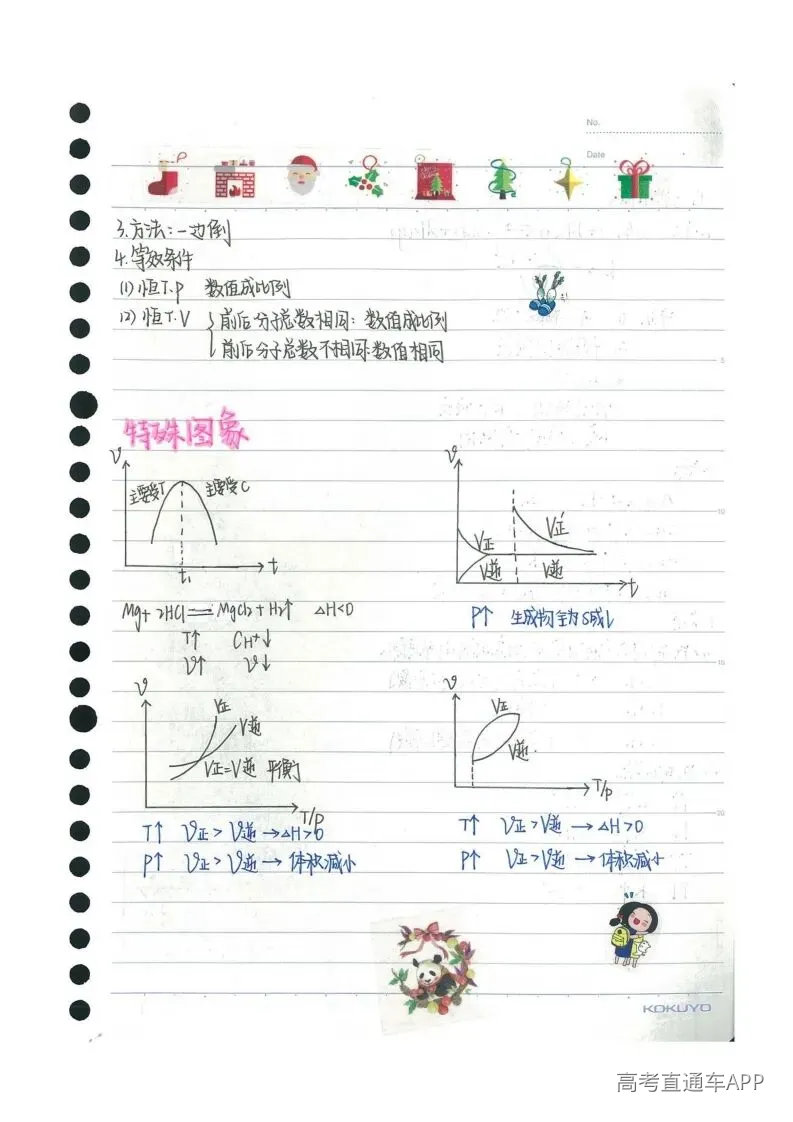 No.
Date
3.方法:一边倒
4.等效条件
(1)恒T.p 数值成比列
(2)恒T.V 前后分子总数相同:数值成比列
前后分子总数不相同:数值相同
特殊图象
v
主要受T 主要受C
t₁
t
v
V正
V逆
V正'
V逆
t
Mg+2HCl=MgCl₂+H₂↑ △H<0
T↑ CH⁺↓
v↑ v↓
P↑ 生成物全为S或l
v
V正
V逆
V正=V逆 平衡
T/p
v
V正
V逆
T/p
T↑ V正>V逆→△H>0
P↑ V正>V逆→体积减小
T↑ V正>V逆→△H>0
P↑ V正>V逆→体积减小
KOKUYO
高考直通车APP